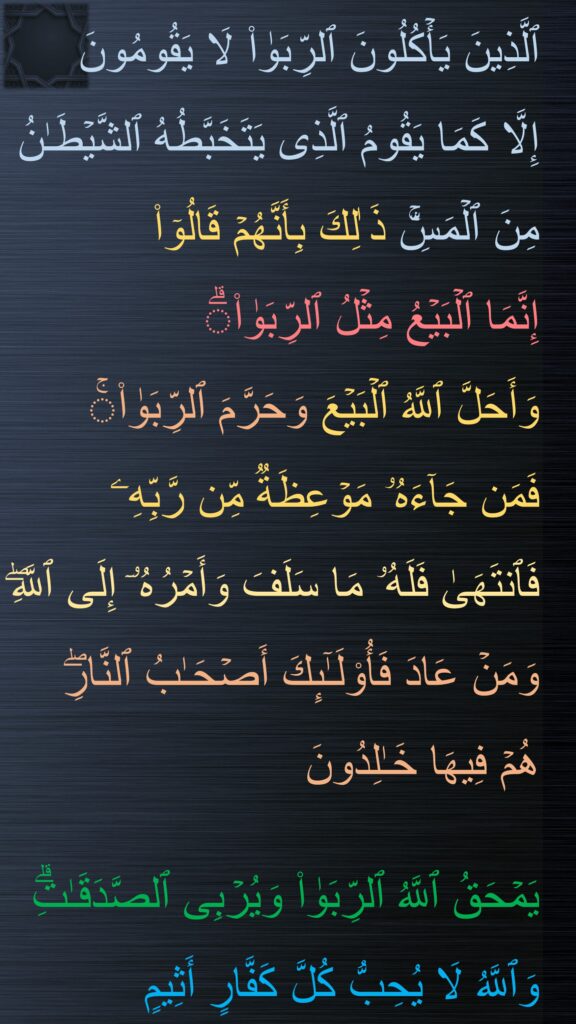 ٱلَّذِينَ يَأۡكُلُونَ ٱلرِّبَوٰاْ لَا يَقُومُونَ
إِلَّا كَمَا يَقُومُ ٱلَّذِى يَتَخَبَّطُهُ ٱلشَّيۡطَـٰنُ
مِنَ ٱلۡمَسِّۚ ذَ ٰلِكَ بِأَنَّهُمۡ قَالُوٓاْ
إِنَّمَا ٱلۡبَيۡعُ مِثۡلُ ٱلرِّبَوٰاْۗ
وَأَحَلَّ ٱللَّهُ ٱلۡبَيۡعَ وَحَرَّمَ ٱلرِّبَوٰاْۚ
فَمَن جَاۤءَهُۥ مَوۡعِظَةࣱ مِّن رَّبِّهِۦ
فَٱنتَهَىٰ فَلَهُۥ مَا سَلَفَ وَأَمۡرُهُۥۤ إِلَى ٱللَّهِۖ
وَمَنۡ عَادَ فَأُوْلَـٰۤىِٕكَ أَصۡحَـٰبُ ٱلنَّارِۖ
هُمۡ فِيهَا خَـٰلِدُونَ
يَمۡحَقُ ٱللَّهُ ٱلرِّبَوٰاْ وَيُرۡبِى ٱلصَّدَقَـٰتِۗ
وَٱللَّهُ لَا يُحِبُّ كُلَّ كَفَّارٍ أَثِيمٍ